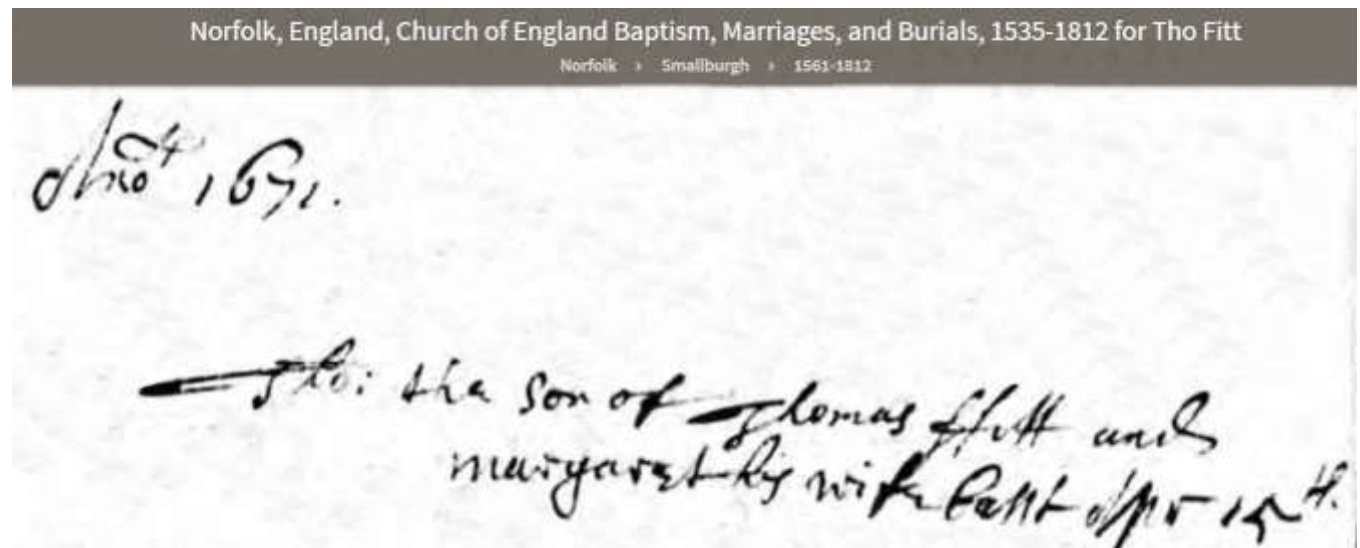 Norfolk, England, Church of England Baptism, Marriages, and Burials, 1535-1812 for Tho Fitt
Norfolk › Smallburgh › 1561-1812
Ano 1671.
Tho: the son of Thomas ffitt and
margaret his wife bapt Apr 15th.